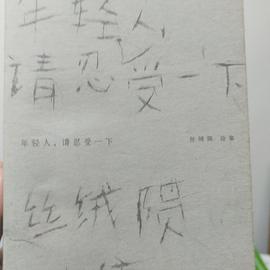 年轻人,
请忍受一下
年轻人，请忍受一下 丝绒陨 诗集
丝绒陨